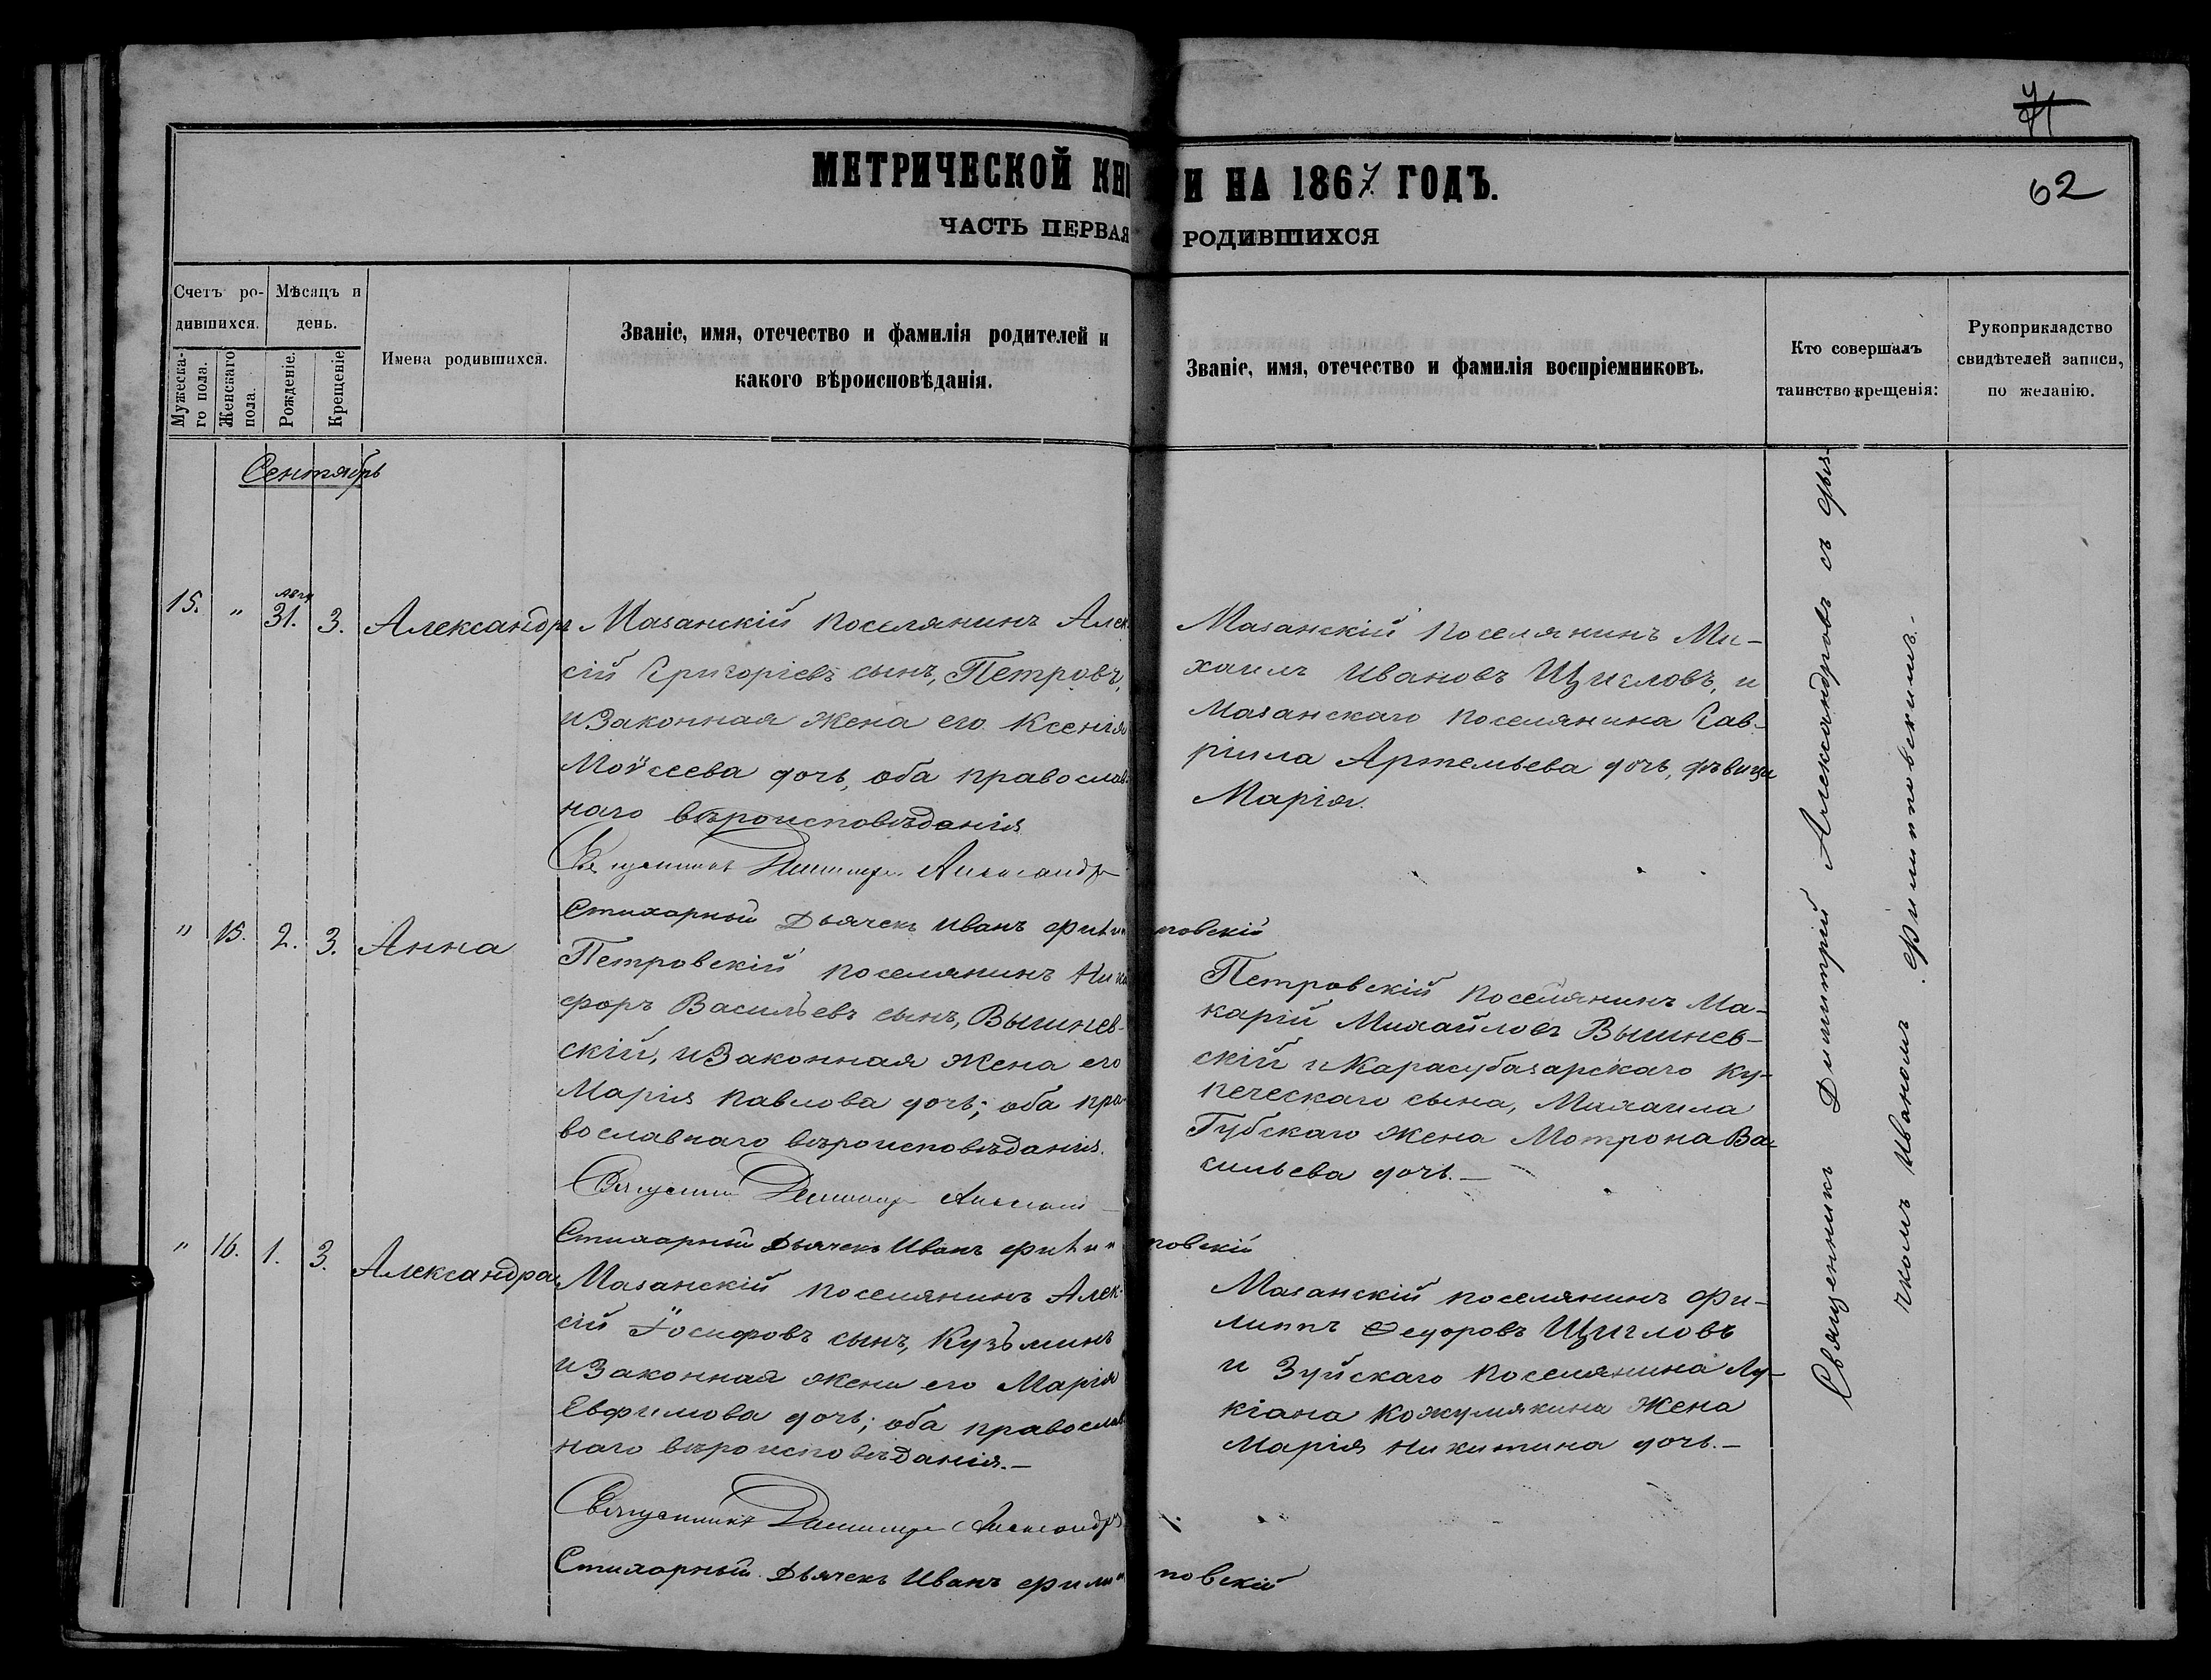 71
МЕТРИЧЕСКОЙ КНИ И НА 1867 ГОДЪ.
62
ЧАСТЬ ПЕРВАЯ РОДИВШИХСЯ
Счетъ ро-
дившихся.
Мужеска-
го пола.
Женскаго
пола.
Мѣсяцъ и
день.
Рожденіе.
Крещеніе
Имена родившихся.
Званіе, имя, отечество и фамилія родителей и
какого вѣроисповѣданія.
Званіе, имя, отечество и фамилія воспріемниковъ.
Кто совершалъ
таинство крещенія:
Рукоприкладство
свидѣтелей записи,
по желанію.
Сентябрь
15. " Авгу 31. 3. Александръ
Мазанскій поселянинъ Алек
сій Григоріевъ сынъ, Петровъ,
и Законная жена его Ксенія
Мойсеева дочь, оба православ
наго вѣроисповѣданія
Священникъ Димитрій Александр
Стихарный Дьячекъ Иванъ Филип повскій
Мазанскій поселянинъ Ми-
хаилъ Ивановъ Щигловъ, и
Мазанскаго поселянина Гав-
ріила Артемьева дочь, дѣвица
Марія.
" 15. 2. 3. Анна
Петровскій поселянинъ Ники
форъ Васильевъ сынъ, Вышнев-
скій, и Законная жена его
Марія Павлова дочь; оба пра-
вославнаго вѣроисповѣданія.
Священник Димитр
Стихарный Дьячекъ Иванъ Филип повскій
Петровскій поселянинъ Ма-
карій Михайловъ Вышнев-
скій и Карасубазарскаго ку-
печескаго сына, Михаила
Губскаго жена Мотрона Ва-
сильева дочь.—
" 16. 1. 3. Александра
Мазанскій поселянинъ Алек-
сій Іосифовъ сынъ, Кузьминъ
и Законная жена его Марія
Евфимова дочь; оба православ
наго вѣроисповѣданія.—
Священникъ Димитрій Александр
Стихарный Дьячекъ Иванъ Филип повскій
Мазанскій поселянинъ Фи-
липпъ Ѳедоровъ Щигловъ
и Зуйскаго поселянина Лу-
кіана Кожумякина жена
Марія Никитина дочь.—
Священникъ Димитрій Александровъ съ дья-
чкомъ Иваномъ Филипповскимъ.-